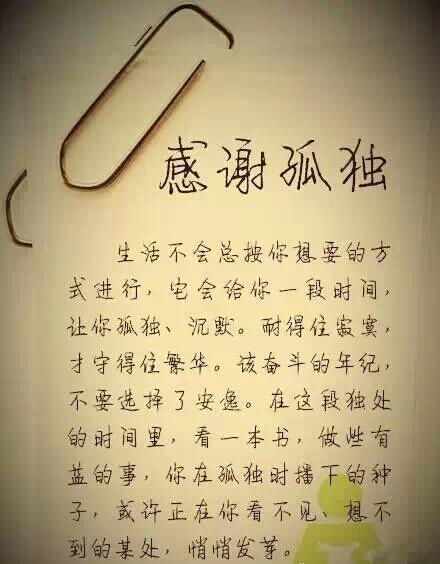 感谢孤独
生活不会总按你想要的方
式进行，它会给你一段时间，
让你孤独、沉默。耐得住寂寞，
才守得住繁华。该奋斗的年纪，
不要选择了安逸。在这段独处
的时间里，看一本书，做些有
益的事，你在孤独时播下的种
子，或许正在你看不见、想不
到的某处，悄悄发芽。